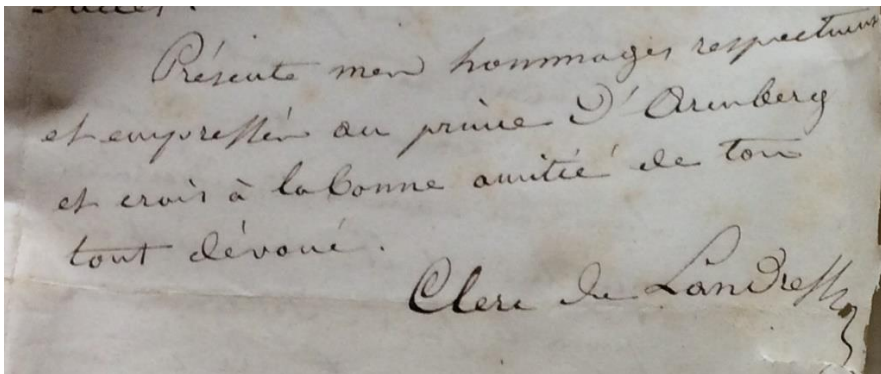 Présente mes hommages respectueux
et empressés au prince D'Aremberg
et crois à la bonne amitié de ton
tout dévoué.
Clerc de Landresse